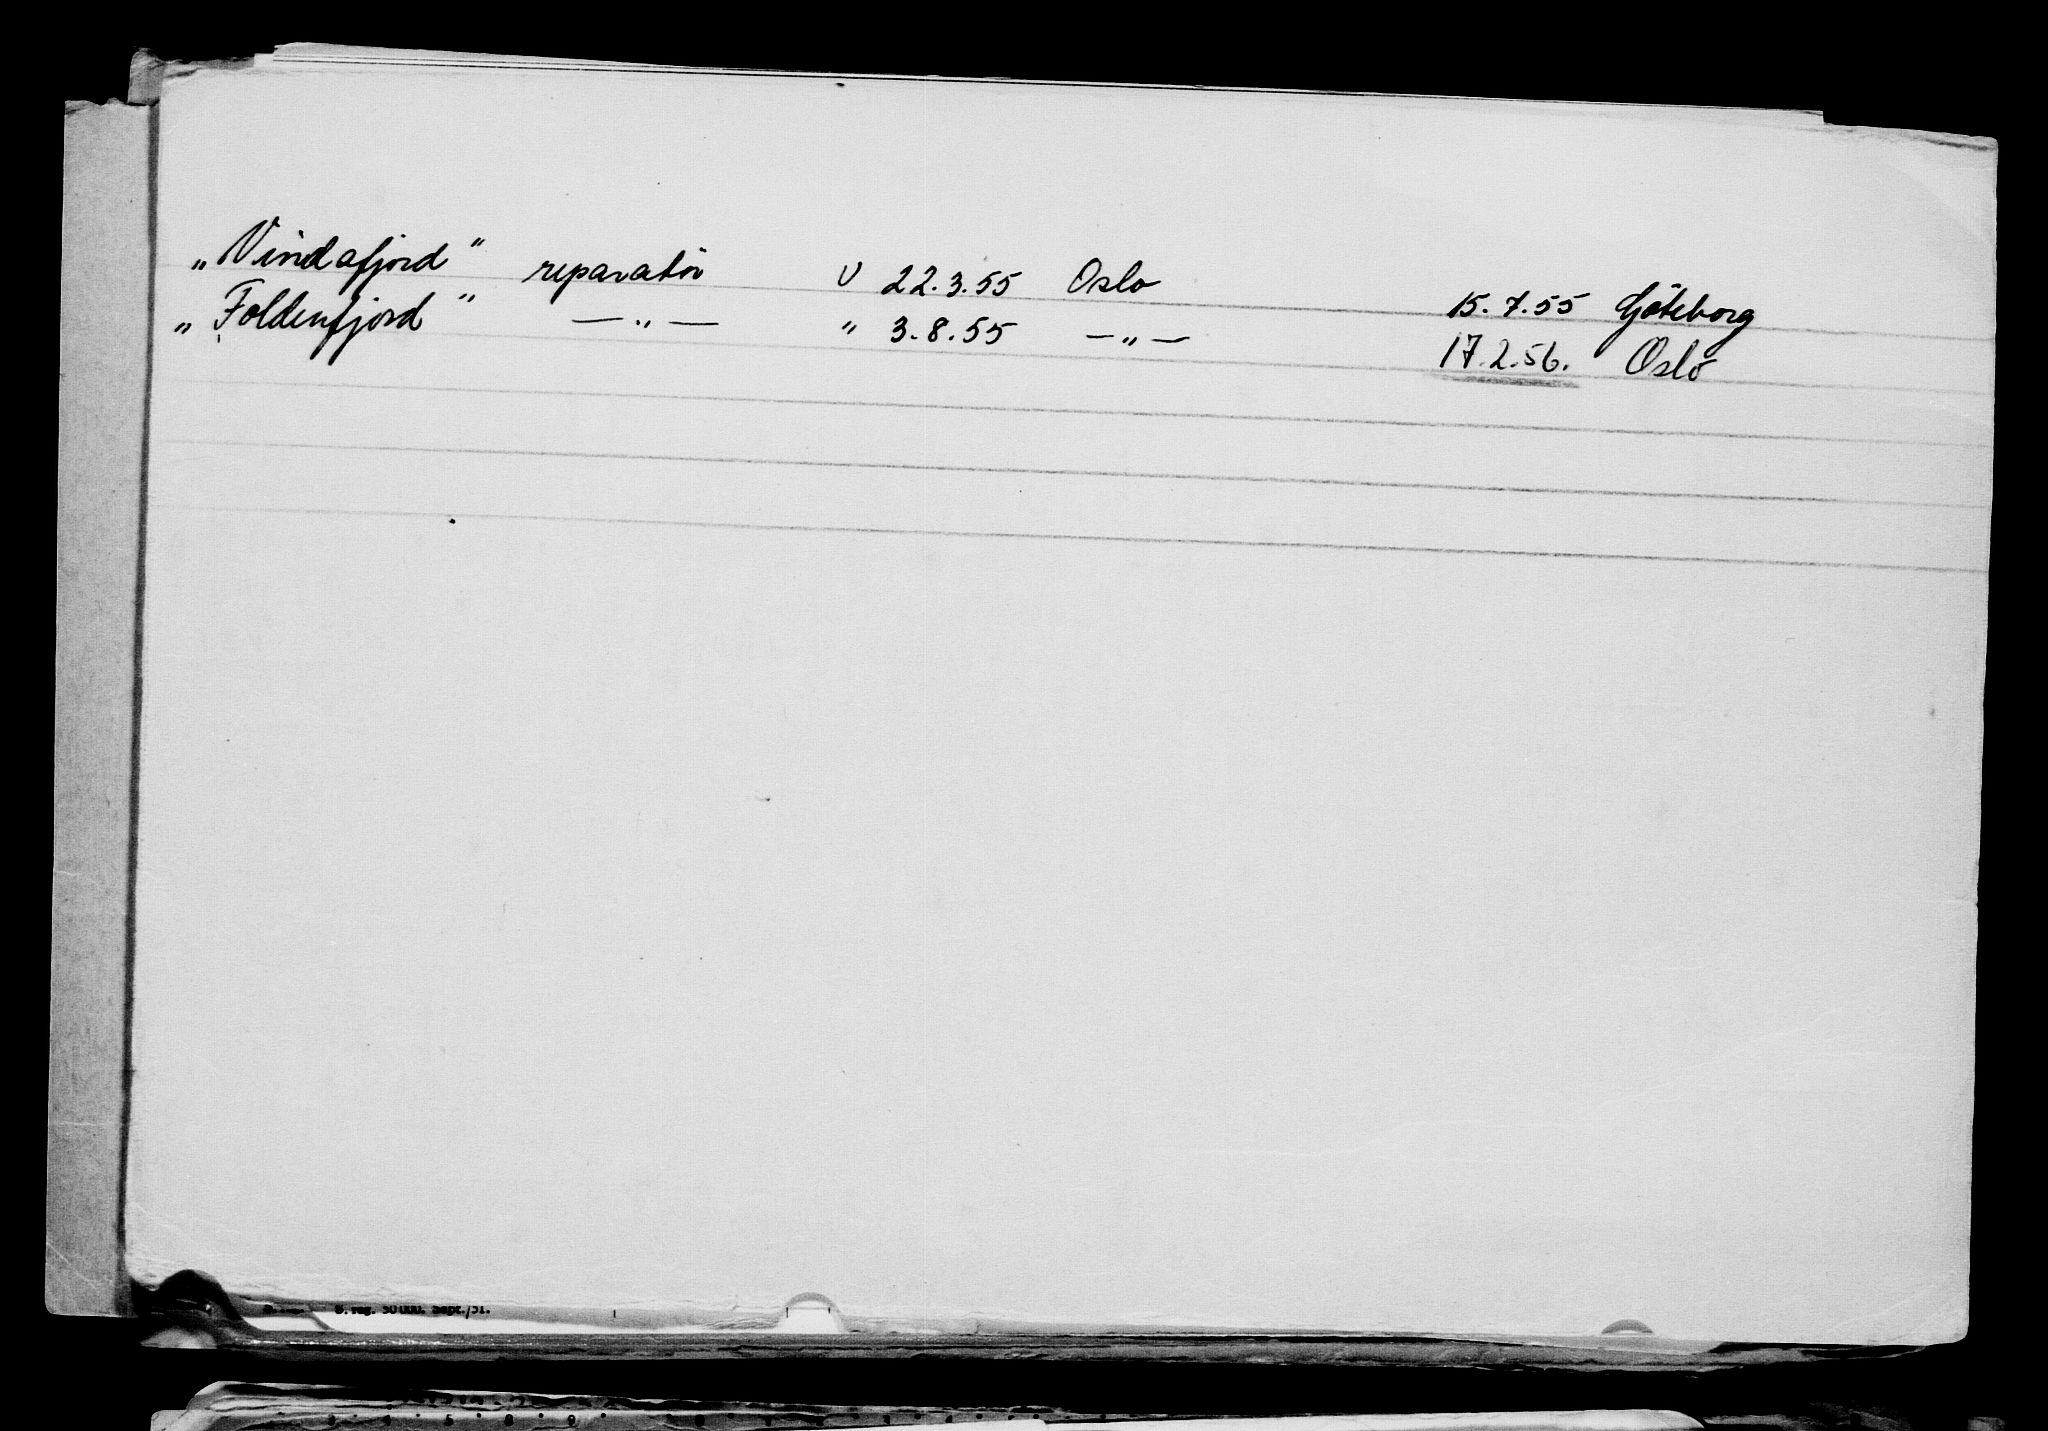 „Vindafjord" reparatør U 22.3.55 Oslo 15.7.55 Göteborg
„Foldenfjord" —„— " 3.8.55 —„— 17.2.56. Oslo
reg. 50000. Sept./51.